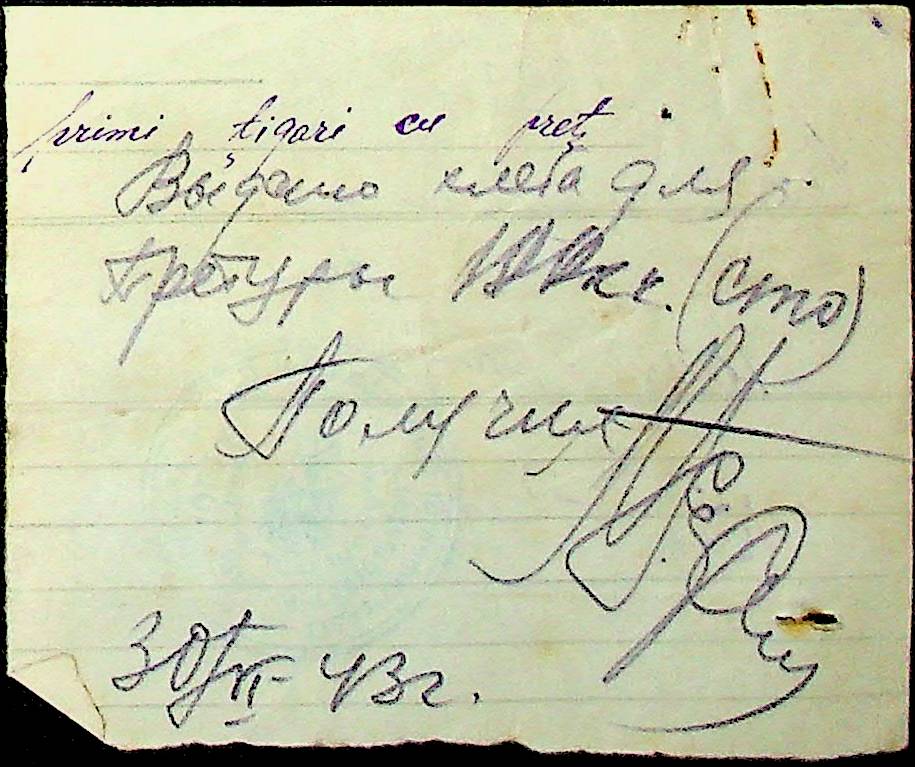 primi țigari cu preț
Выдано хлеба для
Претуры 100 кг. (сто)
Получил
30/VI-43г.